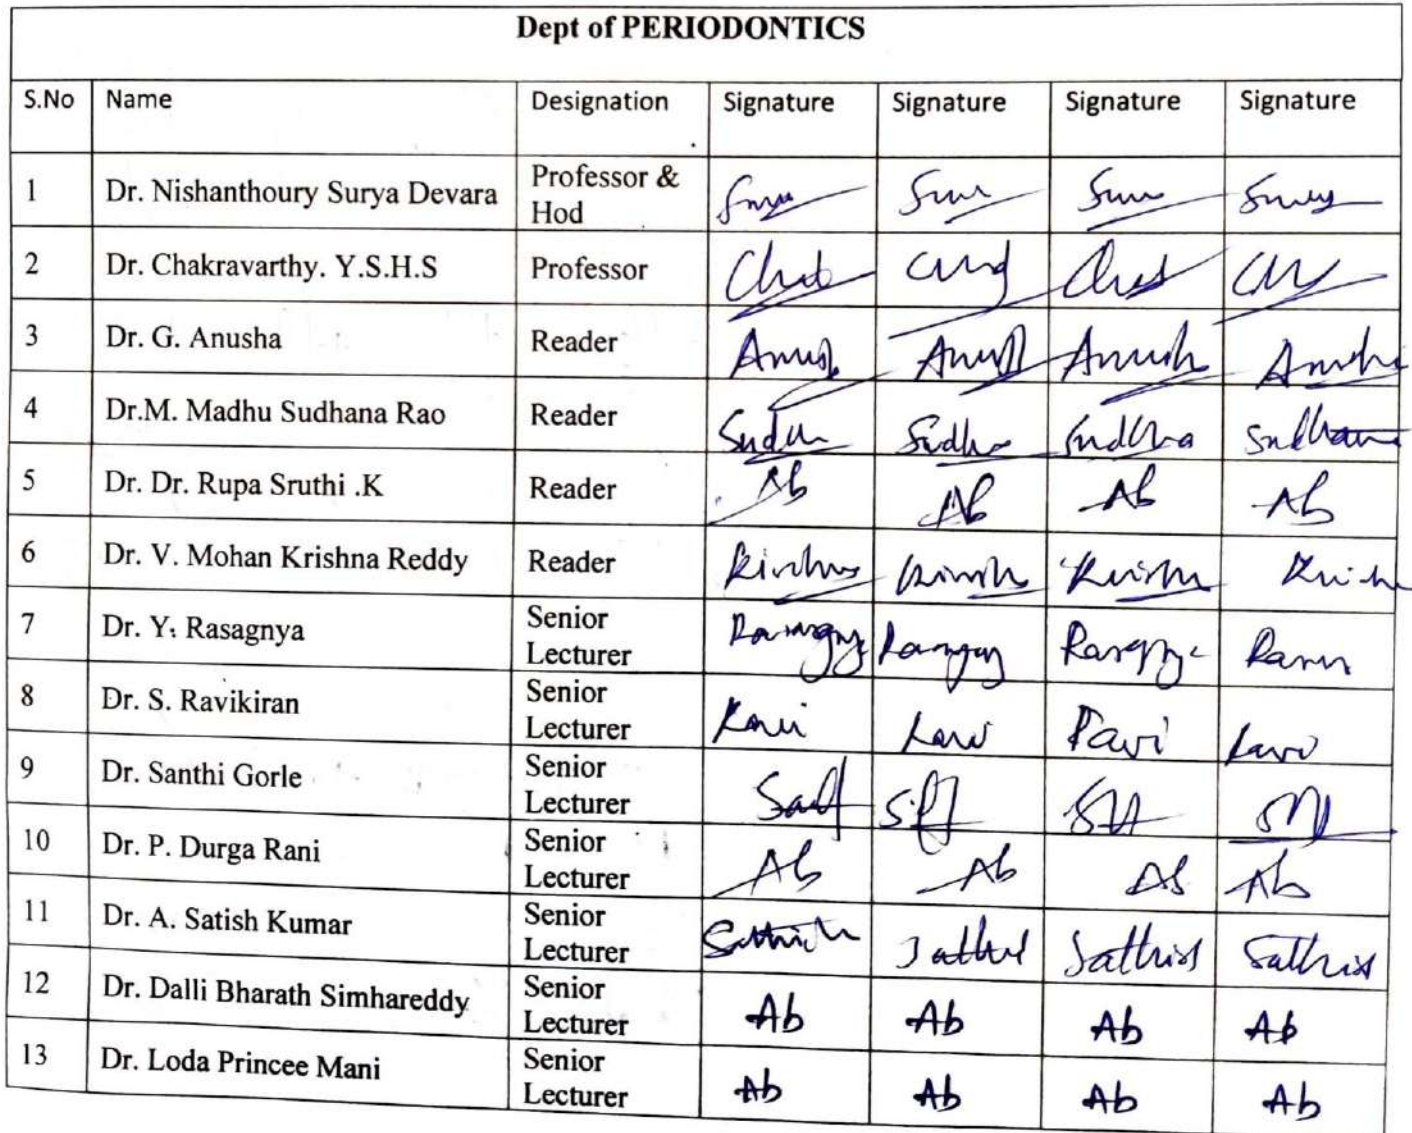 Dept of PERIODONTICS
S.No Name Designation Signature Signature Signature Signature
1 Dr. Nishanthoury Surya Devara Professor &
Hod
2 Dr. Chakravarthy. Y.S.H.S Professor
3 Dr. G. Anusha Reader Anush Anusha
4 Dr.M. Madhu Sudhana Rao Reader Sudha Sudha
5 Dr. Dr. Rupa Sruthi .K Reader Ab Ab Ab Ab
6 Dr. V. Mohan Krishna Reddy Reader
7 Dr. Y. Rasagnya Senior
Lecturer
8 Dr. S. Ravikiran Senior
Lecturer Ravi Ravi Ravi Ravi
9 Dr. Santhi Gorle Senior
Lecturer
10 Dr. P. Durga Rani Senior
Lecturer Ab Ab Ab Ab
11 Dr. A. Satish Kumar Senior
Lecturer Sathish Sathis Sathis
12 Dr. Dalli Bharath Simhareddy Senior
Lecturer Ab Ab Ab Ab
13 Dr. Loda Princee Mani Senior
Lecturer Ab Ab Ab Ab